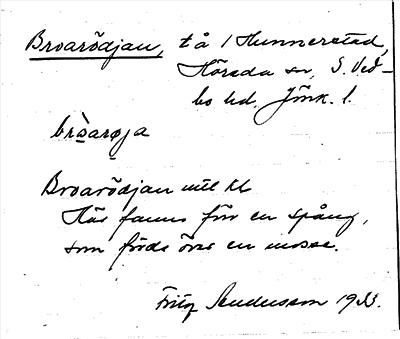 Broarödjan, tå / Hunnerstad,
Hörsda sn, S. Ved-
bo hd. Jönk. l.
bròarøja
Broarödjan
Här fanns förr en spång,
som förde över en mosse.
Fritz 1933.